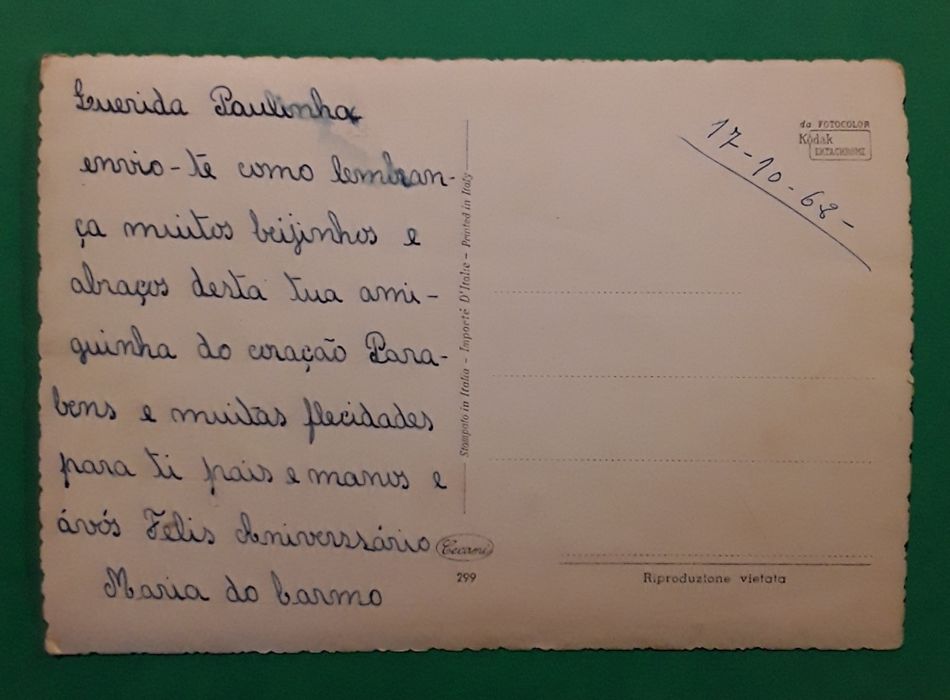 Querida Paulinha
envio-te como lembran-
ça muitos beijinhos e
abraços desta tua ami-
guinha do coração Para-
bens e muitas flecidades
para ti pais e manos e
ávós Felis Aniverssário
Maria do Carmo
Stampato in Italia - Importé D'Italie - Printed in Italy
Cecami
299
17-10-68-
da FOTOCOLOR
Kodak
EKTACHROME
Riproduzione vietata